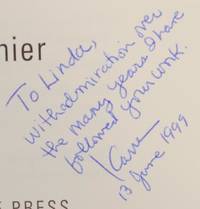 nier
To Linda,
with admiration over
the many years I have
followed your work.
13 June 1999
PRESS